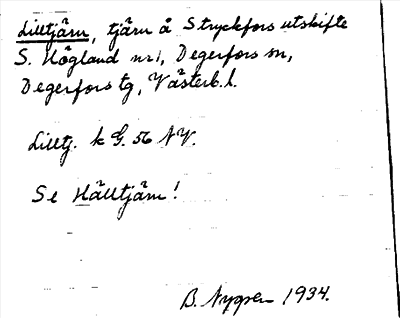 Lilltjärn, tjärn å Stryckfors utskifte
S. Högland nr 1, Degerfors sn,
Degerfors tg, Västerb. l.
Lilltj. k G. 56 NV.
Se Hålltjärn!
B. Nygren 1934.